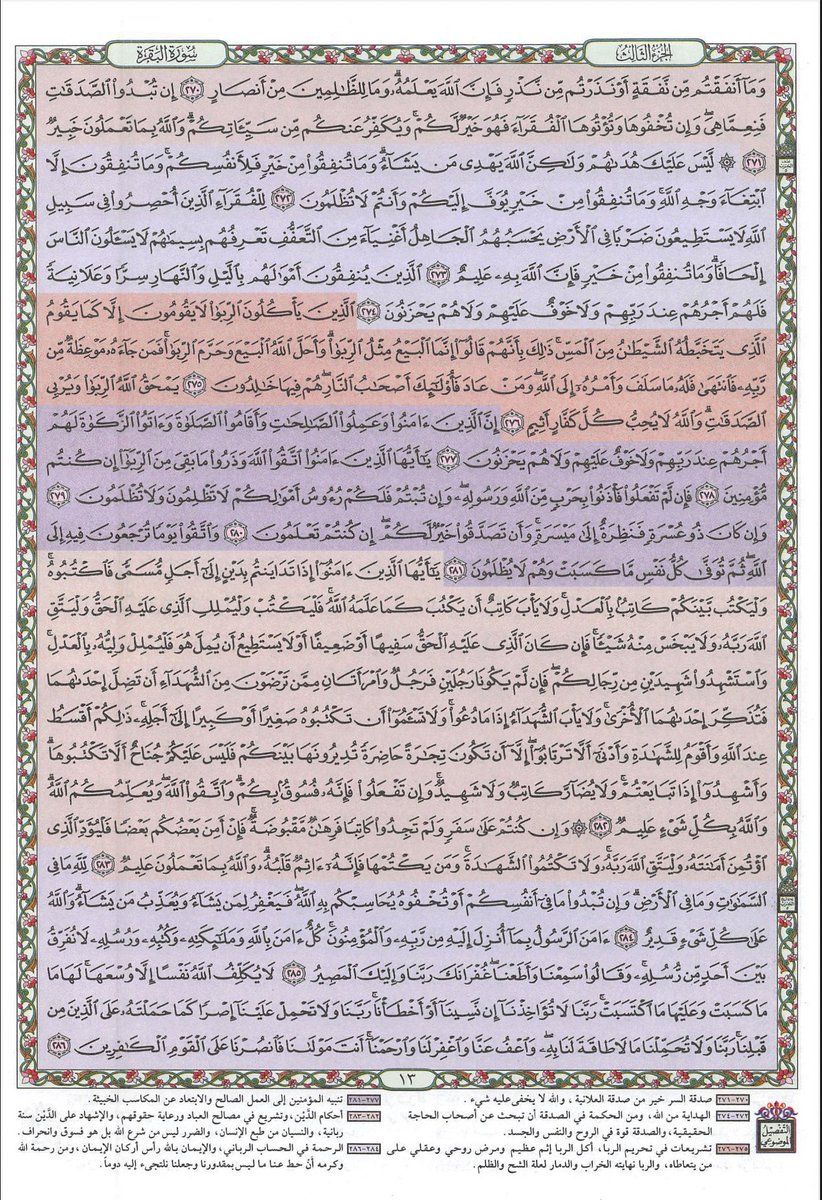 الجزء الثالث
سورة البقرة
وَمَا أَنفَقْتُم مِّن نَّفَقَةٍ أَوْ نَذَرْتُم مِّن نَّذْرٍ فَإِنَّ ٱللَّهَ يَعْلَمُهُۥ ۗ وَمَا لِلظَّٰلِمِينَ مِنْ أَنصَارٍ ٢٧٠ إِن تُبْدُوا۟ ٱلصَّدَقَٰتِ
فَنِعِمَّا هِىَ ۖ وَإِن تُخْفُوهَا وَتُؤْتُوهَا ٱلْفُقَرَآءَ فَهُوَ خَيْرٌ لَّكُمْ ۚ وَيُكَفِّرُ عَنكُم مِّن سَيِّـَٔاتِكُمْ ۗ وَٱللَّهُ بِمَا تَعْمَلُونَ خَبِيرٌ
٢٧١ ۞ لَّيْسَ عَلَيْكَ هُدَىٰهُمْ وَلَٰكِنَّ ٱللَّهَ يَهْدِى مَن يَشَآءُ ۗ وَمَا تُنفِقُوا۟ مِنْ خَيْرٍ فَلِأَنفُسِكُمْ ۚ وَمَا تُنفِقُونَ إِلَّا
ٱبْتِغَآءَ وَجْهِ ٱللَّهِ ۚ وَمَا تُنفِقُوا۟ مِنْ خَيْرٍ يُوَفَّ إِلَيْكُمْ وَأَنتُمْ لَا تُظْلَمُونَ ٢٧٢ لِلْفُقَرَآءِ ٱلَّذِينَ أُحْصِرُوا۟ فِى سَبِيلِ
ٱللَّهِ لَا يَسْتَطِيعُونَ ضَرْبًا فِى ٱلْأَرْضِ يَحْسَبُهُمُ ٱلْجَاهِلُ أَغْنِيَآءَ مِنَ ٱلتَّعَفُّفِ تَعْرِفُهُم بِسِيمَٰهُمْ لَا يَسْـَٔلُونَ ٱلنَّاسَ
إِلْحَافًا ۗ وَمَا تُنفِقُوا۟ مِنْ خَيْرٍ فَإِنَّ ٱللَّهَ بِهِۦ عَلِيمٌ ٢٧٣ ٱلَّذِينَ يُنفِقُونَ أَمْوَٰلَهُم بِٱلَّيْلِ وَٱلنَّهَارِ سِرًّا وَعَلَانِيَةً
فَلَهُمْ أَجْرُهُمْ عِندَ رَبِّهِمْ وَلَا خَوْفٌ عَلَيْهِمْ وَلَا هُمْ يَحْزَنُونَ ٢٧٤ ٱلَّذِينَ يَأْكُلُونَ ٱلرِّبَوٰا۟ لَا يَقُومُونَ إِلَّا كَمَا يَقُومُ
ٱلَّذِى يَتَخَبَّطُهُ ٱلشَّيْطَٰنُ مِنَ ٱلْمَسِّ ۚ ذَٰلِكَ بِأَنَّهُمْ قَالُوٓا۟ إِنَّمَا ٱلْبَيْعُ مِثْلُ ٱلرِّبَوٰا۟ ۗ وَأَحَلَّ ٱللَّهُ ٱلْبَيْعَ وَحَرَّمَ ٱلرِّبَوٰا۟ ۚ فَمَن جَآءَهُۥ مَوْعِظَةٌ مِّن
رَّبِّهِۦ فَٱنتَهَىٰ فَلَهُۥ مَا سَلَفَ وَأَمْرُهُۥٓ إِلَى ٱللَّهِ ۖ وَمَنْ عَادَ فَأُو۟لَٰٓئِكَ أَصْحَٰبُ ٱلنَّارِ ۖ هُمْ فِيهَا خَٰلِدُونَ ٢٧٥ يَمْحَقُ ٱللَّهُ ٱلرِّبَوٰا۟ وَيُرْبِى
ٱلصَّدَقَٰتِ ۗ وَٱللَّهُ لَا يُحِبُّ كُلَّ كَفَّارٍ أَثِيمٍ ٢٧٦ إِنَّ ٱلَّذِينَ ءَامَنُوا۟ وَعَمِلُوا۟ ٱلصَّٰلِحَٰتِ وَأَقَامُوا۟ ٱلصَّلَوٰةَ وَءَاتَوُا۟ ٱلزَّكَوٰةَ لَهُمْ
أَجْرُهُمْ عِندَ رَبِّهِمْ وَلَا خَوْفٌ عَلَيْهِمْ وَلَا هُمْ يَحْزَنُونَ ٢٧٧ يَٰٓأَيُّهَا ٱلَّذِينَ ءَامَنُوا۟ ٱتَّقُوا۟ ٱللَّهَ وَذَرُوا۟ مَا بَقِىَ مِنَ ٱلرِّبَوٰٓا۟ إِن كُنتُم
مُّؤْمِنِينَ ٢٧٨ فَإِن لَّمْ تَفْعَلُوا۟ فَأْذَنُوا۟ بِحَرْبٍ مِّنَ ٱللَّهِ وَرَسُولِهِۦ ۖ وَإِن تُبْتُمْ فَلَكُمْ رُءُوسُ أَمْوَٰلِكُمْ لَا تَظْلِمُونَ وَلَا تُظْلَمُونَ ٢٧٩
وَإِن كَانَ ذُو عُسْرَةٍ فَنَظِرَةٌ إِلَىٰ مَيْسَرَةٍ ۚ وَأَن تَصَدَّقُوا۟ خَيْرٌ لَّكُمْ ۖ إِن كُنتُمْ تَعْلَمُونَ ٢٨٠ وَٱتَّقُوا۟ يَوْمًا تُرْجَعُونَ فِيهِ إِلَى
ٱللَّهِ ۖ ثُمَّ تُوَفَّىٰ كُلُّ نَفْسٍ مَّا كَسَبَتْ وَهُمْ لَا يُظْلَمُونَ ٢٨١ يَٰٓأَيُّهَا ٱلَّذِينَ ءَامَنُوٓا۟ إِذَا تَدَايَنتُم بِدَيْنٍ إِلَىٰٓ أَجَلٍ مُّسَمًّى فَٱكْتُبُوهُ ۚ
وَلْيَكْتُب بَّيْنَكُمْ كَاتِبٌۢ بِٱلْعَدْلِ ۚ وَلَا يَأْبَ كَاتِبٌ أَن يَكْتُبَ كَمَا عَلَّمَهُ ٱللَّهُ ۚ فَلْيَكْتُبْ وَلْيُمْلِلِ ٱلَّذِى عَلَيْهِ ٱلْحَقُّ وَلْيَتَّقِ
ٱللَّهَ رَبَّهُۥ وَلَا يَبْخَسْ مِنْهُ شَيْـًٔا ۚ فَإِن كَانَ ٱلَّذِى عَلَيْهِ ٱلْحَقُّ سَفِيهًا أَوْ ضَعِيفًا أَوْ لَا يَسْتَطِيعُ أَن يُمِلَّ هُوَ فَلْيُمْلِلْ وَلِيُّهُۥ بِٱلْعَدْلِ ۚ
وَٱسْتَشْهِدُوا۟ شَهِيدَيْنِ مِن رِّجَالِكُمْ ۖ فَإِن لَّمْ يَكُونَا رَجُلَيْنِ فَرَجُلٌ وَٱمْرَأَتَانِ مِمَّن تَرْضَوْنَ مِنَ ٱلشُّهَدَآءِ أَن تَضِلَّ إِحْدَىٰهُمَا
فَتُذَكِّرَ إِحْدَىٰهُمَا ٱلْأُخْرَىٰ ۚ وَلَا يَأْبَ ٱلشُّهَدَآءُ إِذَا مَا دُعُوا۟ ۚ وَلَا تَسْـَٔمُوٓا۟ أَن تَكْتُبُوهُ صَغِيرًا أَوْ كَبِيرًا إِلَىٰٓ أَجَلِهِۦ ۚ ذَٰلِكُمْ أَقْسَطُ
عِندَ ٱللَّهِ وَأَقْوَمُ لِلشَّهَٰدَةِ وَأَدْنَىٰٓ أَلَّا تَرْتَابُوٓا۟ ۖ إِلَّآ أَن تَكُونَ تِجَٰرَةً حَاضِرَةً تُدِيرُونَهَا بَيْنَكُمْ فَلَيْسَ عَلَيْكُمْ جُنَاحٌ أَلَّا تَكْتُبُوهَا ۗ
وَأَشْهِدُوٓا۟ إِذَا تَبَايَعْتُمْ ۚ وَلَا يُضَآرَّ كَاتِبٌ وَلَا شَهِيدٌ ۚ وَإِن تَفْعَلُوا۟ فَإِنَّهُۥ فُسُوقٌۢ بِكُمْ ۗ وَٱتَّقُوا۟ ٱللَّهَ ۖ وَيُعَلِّمُكُمُ ٱللَّهُ ۗ
وَٱللَّهُ بِكُلِّ شَىْءٍ عَلِيمٌ ٢٨٢ ۞ وَإِن كُنتُمْ عَلَىٰ سَفَرٍ وَلَمْ تَجِدُوا۟ كَاتِبًا فَرِهَٰنٌ مَّقْبُوضَةٌ ۖ فَإِنْ أَمِنَ بَعْضُكُم بَعْضًا فَلْيُؤَدِّ ٱلَّذِى
ٱؤْتُمِنَ أَمَٰنَتَهُۥ وَلْيَتَّقِ ٱللَّهَ رَبَّهُۥ ۗ وَلَا تَكْتُمُوا۟ ٱلشَّهَٰدَةَ ۚ وَمَن يَكْتُمْهَا فَإِنَّهُۥٓ ءَاثِمٌ قَلْبُهُۥ ۗ وَٱللَّهُ بِمَا تَعْمَلُونَ عَلِيمٌ ٢٨٣ لِّلَّهِ مَا فِى
ٱلسَّمَٰوَٰتِ وَمَا فِى ٱلْأَرْضِ ۗ وَإِن تُبْدُوا۟ مَا فِىٓ أَنفُسِكُمْ أَوْ تُخْفُوهُ يُحَاسِبْكُم بِهِ ٱللَّهُ ۖ فَيَغْفِرُ لِمَن يَشَآءُ وَيُعَذِّبُ مَن يَشَآءُ ۗ وَٱللَّهُ
عَلَىٰ كُلِّ شَىْءٍ قَدِيرٌ ٢٨٤ ءَامَنَ ٱلرَّسُولُ بِمَآ أُنزِلَ إِلَيْهِ مِن رَّبِّهِۦ وَٱلْمُؤْمِنُونَ ۚ كُلٌّ ءَامَنَ بِٱللَّهِ وَمَلَٰٓئِكَتِهِۦ وَكُتُبِهِۦ وَرُسُلِهِۦ لَا نُفَرِّقُ
بَيْنَ أَحَدٍ مِّن رُّسُلِهِۦ ۚ وَقَالُوا۟ سَمِعْنَا وَأَطَعْنَا ۖ غُفْرَانَكَ رَبَّنَا وَإِلَيْكَ ٱلْمَصِيرُ ٢٨٥ لَا يُكَلِّفُ ٱللَّهُ نَفْسًا إِلَّا وُسْعَهَا ۚ لَهَا مَا
مَا كَسَبَتْ وَعَلَيْهَا مَا ٱكْتَسَبَتْ ۗ رَبَّنَا لَا تُؤَاخِذْنَآ إِن نَّسِينَآ أَوْ أَخْطَأْنَا ۚ رَبَّنَا وَلَا تَحْمِلْ عَلَيْنَآ إِصْرًا كَمَا حَمَلْتَهُۥ عَلَى ٱلَّذِينَ مِن
قَبْلِنَا ۚ رَبَّنَا وَلَا تُحَمِّلْنَا مَا لَا طَاقَةَ لَنَا بِهِۦ ۖ وَٱعْفُ عَنَّا وَٱغْفِرْ لَنَا وَٱرْحَمْنَآ ۚ أَنتَ مَوْلَىٰنَا فَٱنصُرْنَا عَلَى ٱلْقَوْمِ ٱلْكَٰفِرِينَ ٢٨٦
١٣
التفصيل
الموضوعي
٢٧٠-٢٧١ صدقة السر خير من صدقة العلانية ، والله لا يخفى عليه شيء .
٢٧٢-٢٧٤ الهداية من الله، ومن الحكمة في الصدقة أن تبحث عن أصحاب الحاجة
الحقيقية، والصدقة قوة في الروح والنفس والجسد.
٢٧٥-٢٧٦ تشريعات في تحريم الربا، أكل الربا إثم عظيم ومرض روحي وعقلي على
من يتعاطاه، والربا نهايته الخراب والدمار لعلة الشح والظلم.
٢٧٧-٢٨١ تنبيه المؤمنين إلى العمل الصالح والابتعاد عن المكاسب الخبيثة.
٢٨٢-٢٨٣ أحكام الدَّيْن، وتشريع في مصالح العباد ورعاية حقوقهم، والإشهاد على الدَّيْن سنة
ربانية، والنسيان من طبع الإنسان، والضرر ليس من شرع الله بل هو فسوق وانحراف.
٢٨٤-٢٨٦ الرحمة في الحساب الرباني، والإيمان بالله رأس أركان الإيمان، ومن رحمة الله
وكرمه أنْ حط عنا ما ليس بمقدورنا وجعلنا نلتجىء إليه دوماً.